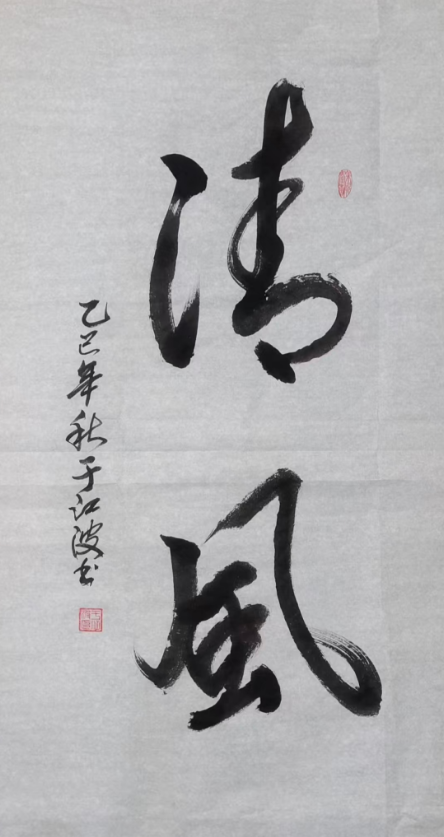 清風
乙巳年秋于江波书